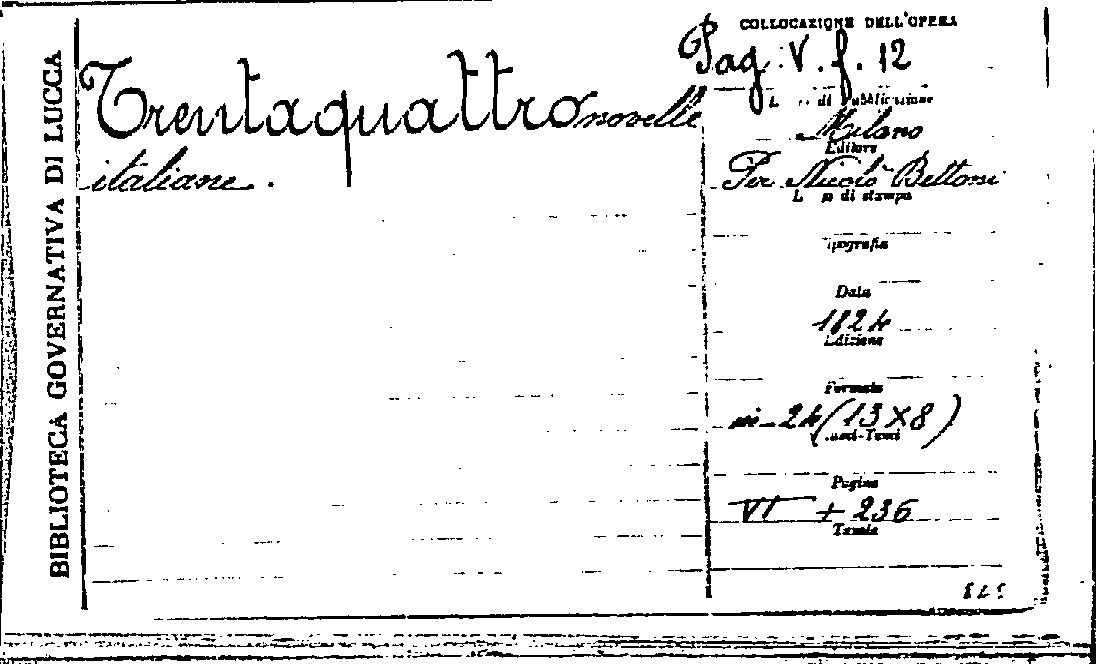 BIBLIOTECA GOVERNATIVA DI LUCCA
Trentaquattro novelle
italiane.
COLLOCAZIONE DELL'OPERA
Pag. V. f. 12
di Pubblicazione
Milano
Editore
Per Nicolò Bettoni
di stampa
Tipografia
Data
1824
Edizione
Formato
in-24 (13 X 8)
Pagine
VI + 236
Tavole